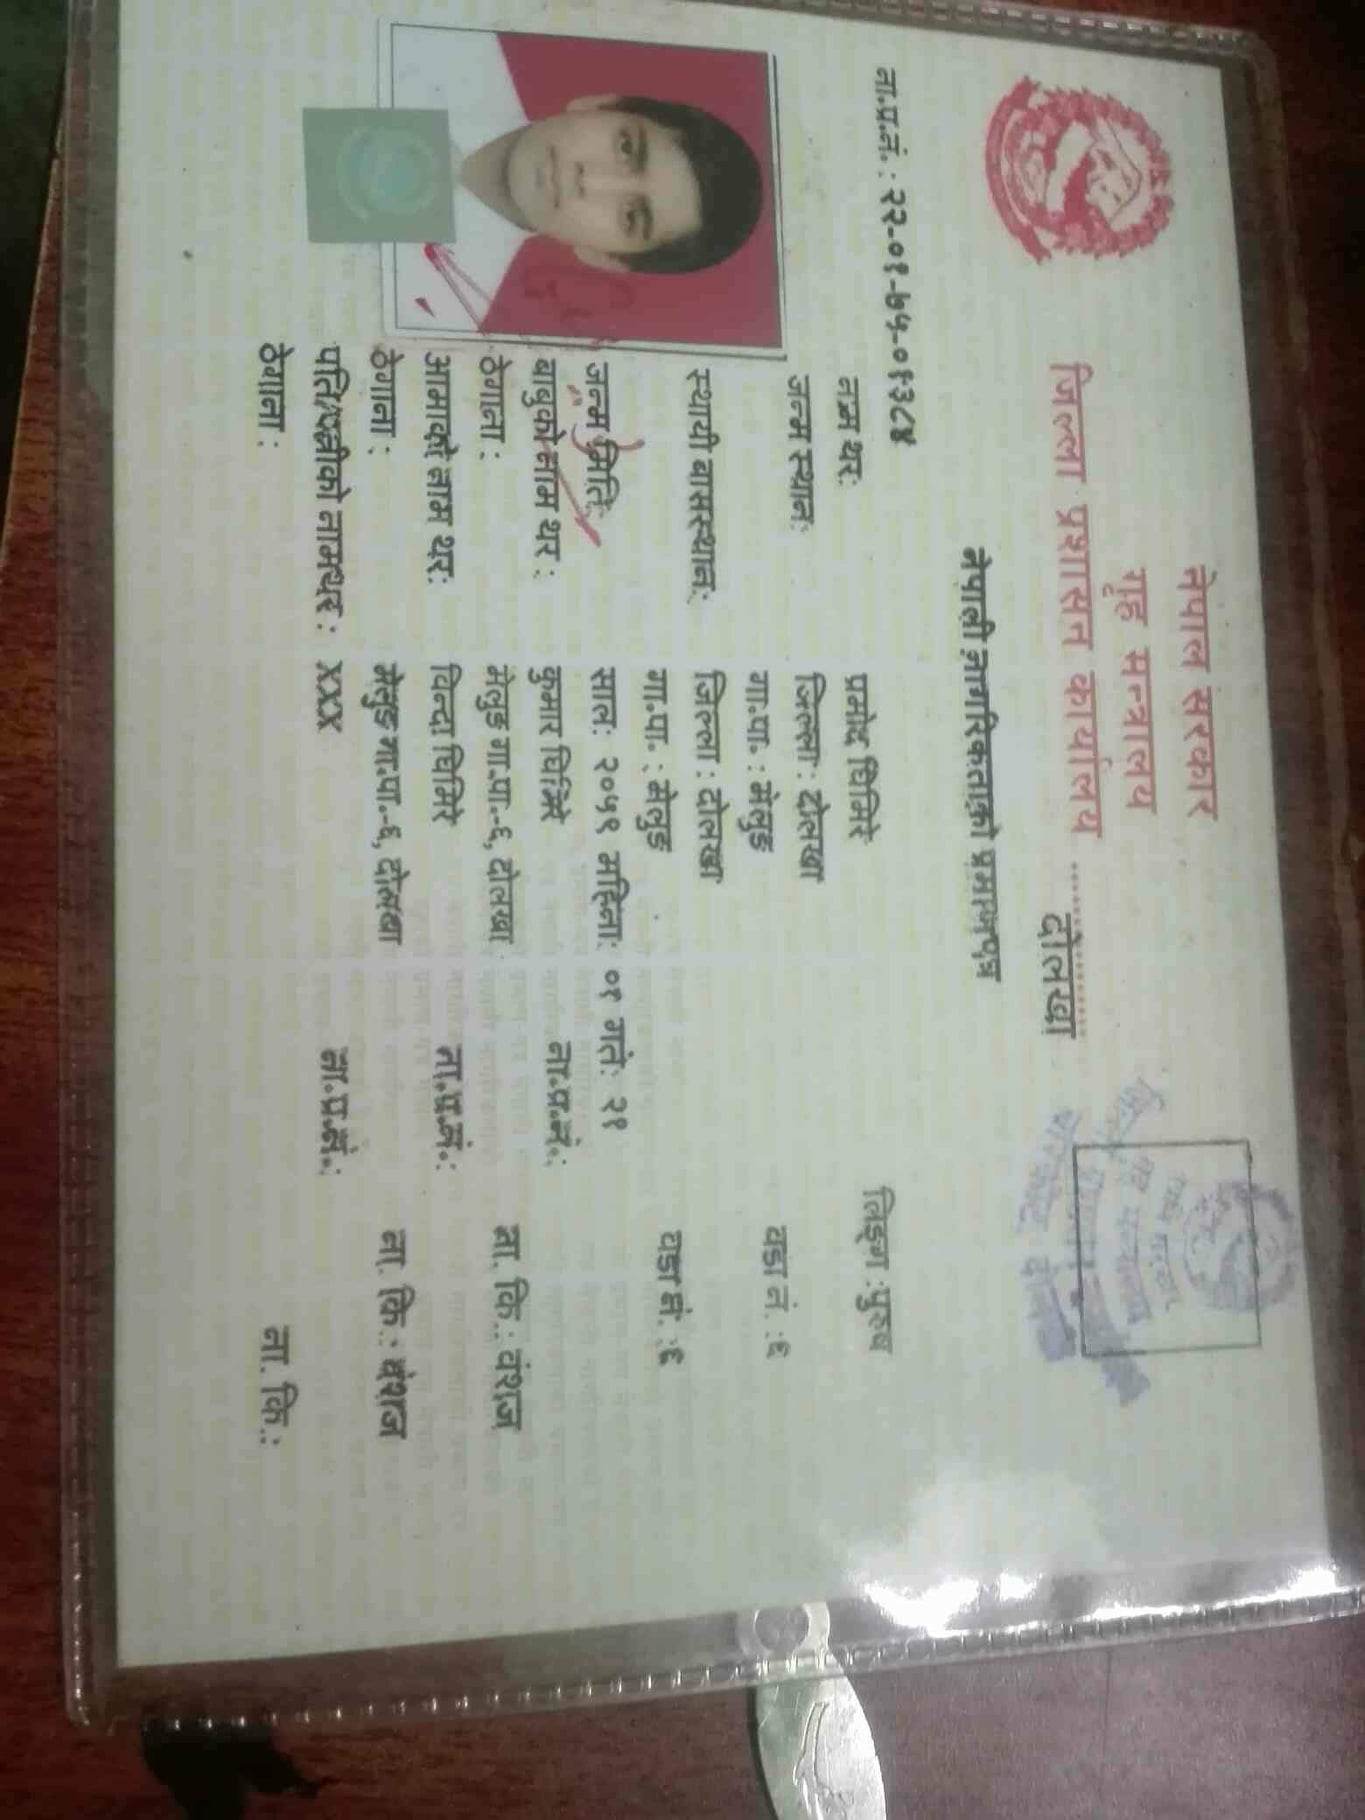 नेपाल सरकार
गृह मन्त्रालय
जिल्ला प्रशासन कार्यालय ............
दोलखा
नेपाली नागरिकताको प्रमाणपत्र
ना.प्र.नं. : २२-०१-७५-०१३८४
नाम थर: प्रमोद घिमिरे लिङ्ग :पुरुष
जन्म स्थान: जिल्ला : दोलखा
गा.पा. : मेलुङ वडा नं. :६
स्थायी बासस्थान: जिल्ला : दोलखा
गा.पा. : मेलुङ वडा नं. :६
जन्म मिति: साल: २०५९ महिना: ०१ गते: २१
बाबुको नाम थर : कुमार घिमिरे ना.प्र.नं.:
ठेगाना : मेलुङ गा.पा.-६, दोलखा ना. कि.: वंशज
आमाको नाम थर: विन्दा घिमिरे ना.प्र.नं.:
ठेगाना : मेलुङ गा.पा.-६, दोलखा ना. कि.: वंशज
पति/पत्नीको नामथर : XXX ना.प्र.नं.:
ठेगाना : ना. कि.: